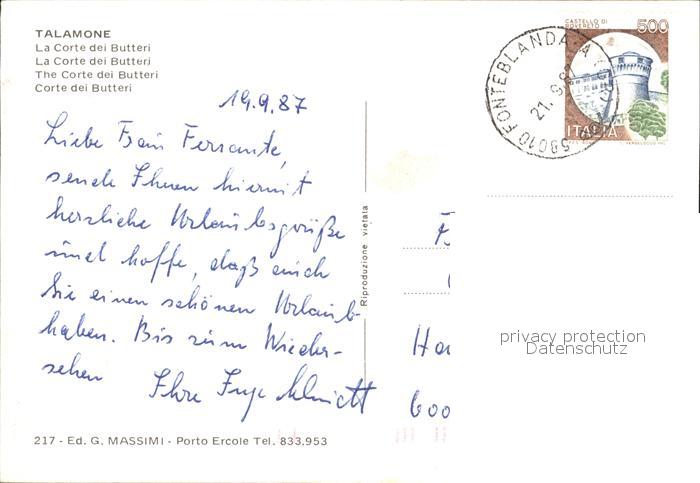 TALAMONE
La Corte dei Butteri
La Corte dei Butteri
The Corte dei Butteri
Corte dei Butteri
19.9.87
Liebe Frau Ferrante,
sende Ihnen hiermit
herzliche Urlaubsgrüße
und hoffe, daß auch
Sie einen schönen Urlaub
haben. Bis zum Wieder-
sehen Ihre Inge Schmidt
217 - Ed. G. MASSIMI - Porto Ercole Tel. 833.953
Riproduzione vietata
CASTELLO DI
ROVERETO
500
ITALIA
58010 FONTEBLANDA
21.9.87
F
Ha
600
privacy protection
Datenschutz